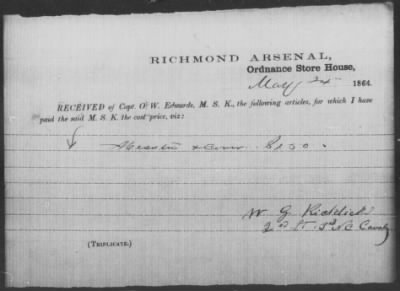 RICHMOND ARSENAL,
Ordnance Store House,
May 24 1864.
RECEIVED of Capt. O. W. Edwards, M. S. K., the following articles, for which I have
paid the said M. S. K. the cost price, viz:
W. G. Riddick
2nd Lt. 3d NC Cavalry
(TRIPLICATE.)